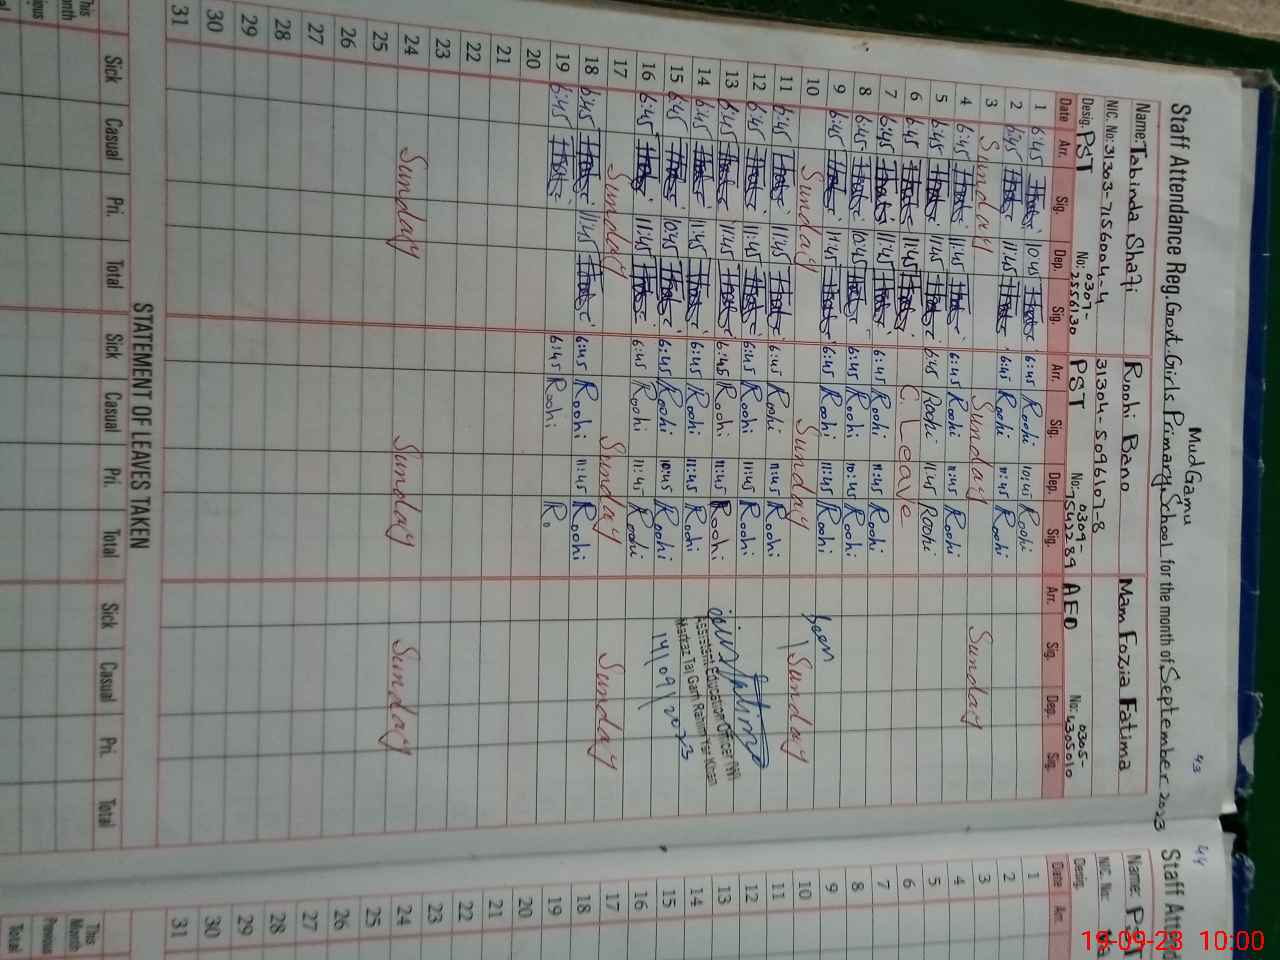 Mud Gamu 43
Staff Attendance Reg. Govt. Girls Primary School for the month of September 2023
Name: Tabinda Shafi Roohi Bano Mam Fozia Fatima
NIC. No: 31303-7156004-4 31304-5096107-8
Desig. PST No: 0307-2556130 PST No: 0309-7542289 AEO No: 0305-4305010
Date Arr. Sig. Dep. Sig. Arr. Sig. Dep. Sig. Arr. Sig. Dep. Sig.
1 6:45 10:45 6:45 Roohi 10:45 Roohi
2 6:45 11:45 6:45 Roohi 11:45 Roohi
3 Sunday Sunday Sunday
4 6:45 11:45 6:45 Roohi 11:45 Roohi
5 6:45 11:45 6:45 Roohi 11:45 Roohi
6 6:45 11:45 C. Leave
7 6:45 11:45 6:45 Roohi 11:45 Roohi
8 6:45 10:45 6:45 Roohi 10:45 Roohi
9 6:45 11:45 6:45 Roohi 11:45 Roohi
10 Sunday Sunday Seen Sunday
11 6:45 11:45 6:45 Roohi 11:45 Roohi
12 6:45 11:45 6:45 Roohi 11:45 Roohi
13 6:45 11:45 6:45 Roohi 11:45 Roohi
14 6:45 11:45 6:45 Roohi 11:45 Roohi
Assistant Education Officer (W)
Markaz Taj Garh Rahim Yar Khan
15 6:45 10:45 6:45 Roohi 10:45 Roohi 14/09/2023
16 6:45 11:45 6:45 Roohi 11:45 Roohi
17 Sunday Sunday Sunday
18 6:45 11:45 6:45 Roohi 11:45 Roohi
19 6:45 6:45 Roohi R.
20
21
22
23
24 Sunday Sunday Sunday
25
26
27
28
29
30
31
STATEMENT OF LEAVES TAKEN
Sick Casual Pri. Total Sick Casual Pri. Total Sick Casual Pri. Total
This Month
44
Staff Attend
Name: P
NIC. No:
Desig. PST
Date Arr.
1
2
3
4
5
6
7
8
9
10
11
12
13
14
15
16
17
18
19
20
21
22
23
24
25
26
27
28
29
30
31
This Month
Previous
Total
19-09-23 10:00